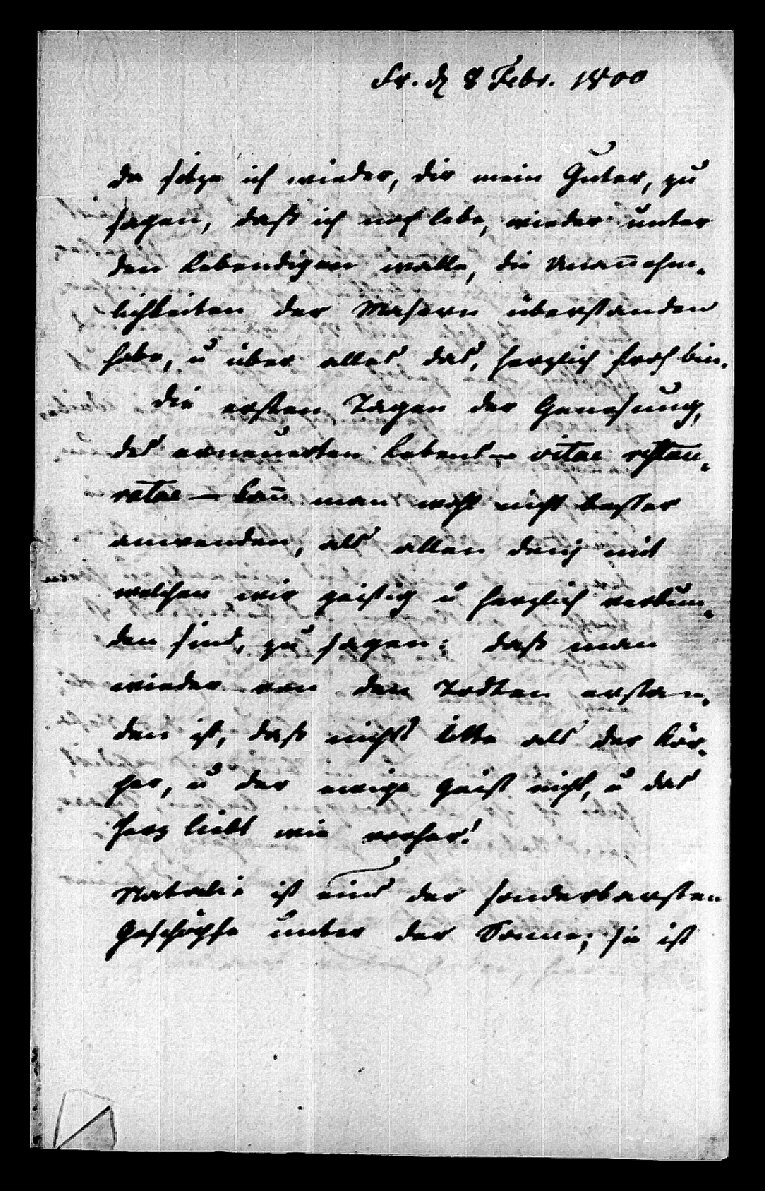 Fr. d 8 Febr. 1800
da sitze ich wieder, dir mein Guter, zu
sagen, daß ich noch lebe, wieder unter
den Lebendigen walle, die Unan̄ehm-
lichkeiten der Masern überstanden
habe, u über alles das, herzlich froh bin.
die ersten Tagen der Genesung,
des erneuerten Lebens – vitae restau-
ratae – kan̄ man wohl nicht besser
anwenden, als allen denen mit
welchen wir geistig u herzlich verbun-
den sind, zu sagen: daß man
wieder von den Todten erstan-
den ist, daß nichts litte als der Kör-
per, u der ewige Geist nicht, u das
Herz liebt wie vorher!
Natalie ist eins der sonderbarsten
Geschöpfe unter der Sonne; sie ist